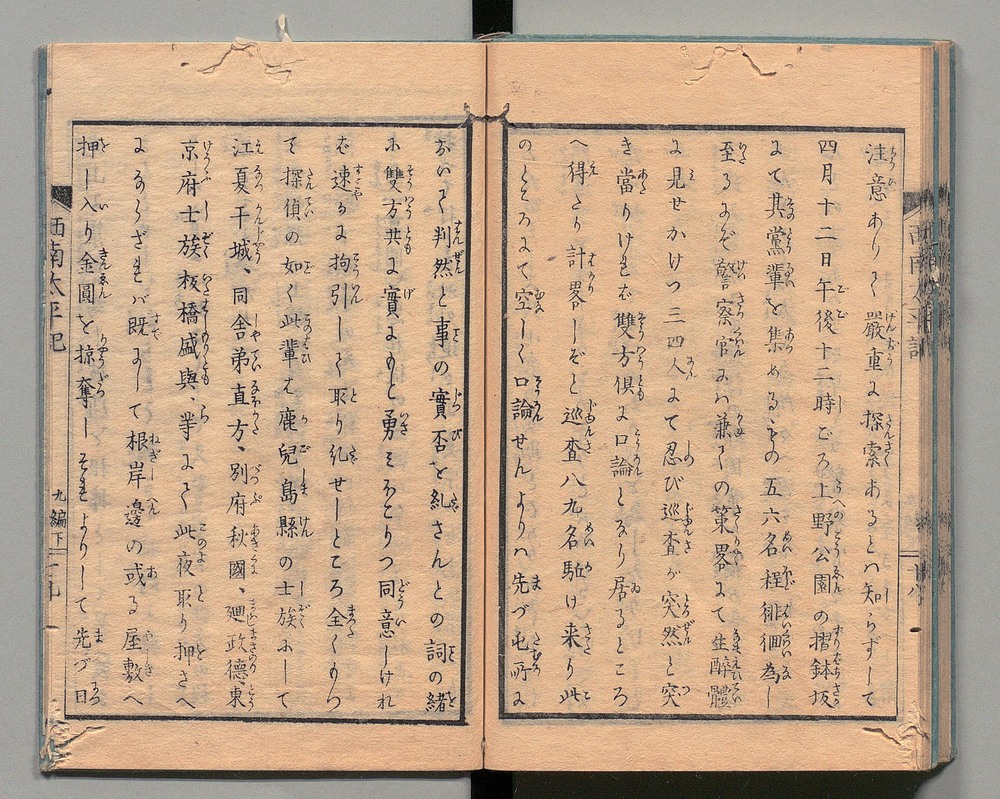 注意ありて嚴重に探索あるとハ知らずして
四月十二日午後十二時ごろ上野公園の摺鉢坂
にて其黨輩を集めるもの五六名程徘徊為し
至るにぞ警察官にハ兼ての策畧にて生醉體
に見せかけつ三四人にて忍び巡査が突然と突
き當りけれバ雙方倶に口論となり居るところ
へ得たり計畧しぞと巡査八九名駈け来り此
のところにて空しく口論せんよりハ先づ屯所に
おいて判然と事の實否を糺さんとの詞の緒
に雙方共に實にもと勇みをこりつ同意しけれ
バ速かに拘引して取り糺せしところ全くもつ
て探偵の如く此輩ハ鹿兒島縣の士族にして
江夏干城、同舎弟直方、別府秋國、廻政德、東
京府士族板橋盛與、等にて此夜取り押さへ
になら​ざれバ既にして根岸邊の或る屋敷へ
押し入り金圓を掠奪しそれよりして先づ日
西南太平記
九編下